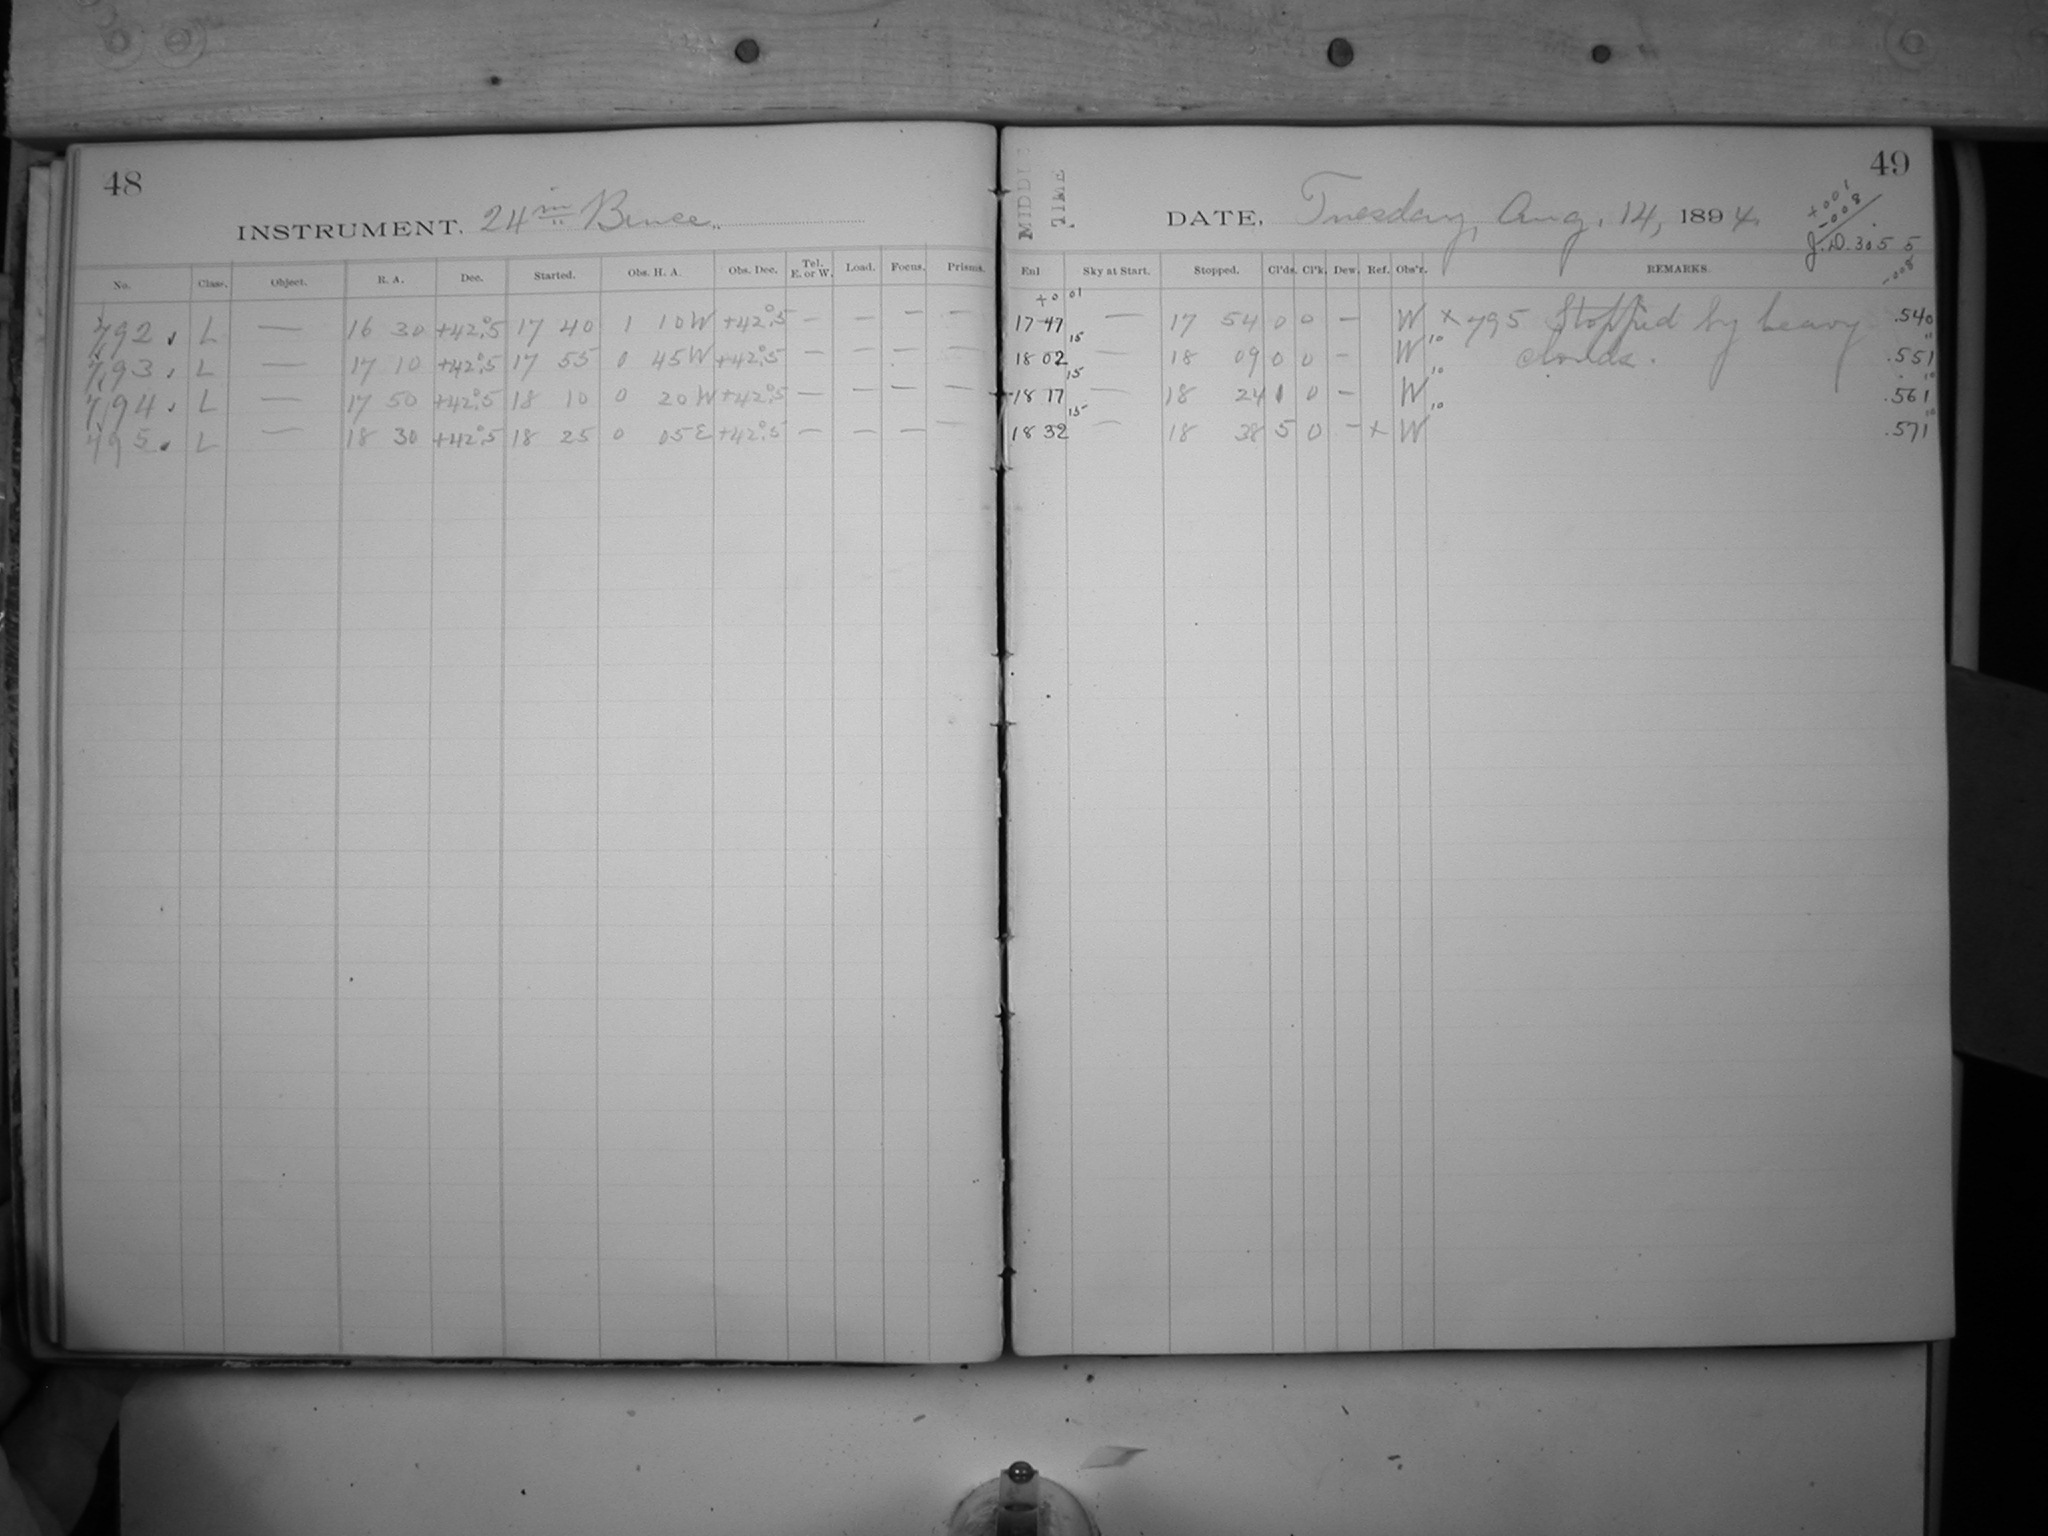 48
INSTRUMENT. 24 in Bruce.
No. Class. Object. R. A. Dec. Started. Obs. H. A. Obs. Dec. Tel. E. or W. Load. Focus. Prisms.
792. L — 16 30 +42°.5 17 40 1 10 W +42°.5 — — — —
793. L — 17 10 +42°.5 17 55 0 45 W +42°.5 — — — —
794. L — 17 50 +42°.5 18 10 0 20 W +42°.5 — — — —
795. L — 18 30 +42°.5 18 25 0 05 E +42°.5 — — — —
49
MIDDLE TIME
DATE, Tuesday, Aug. 14, 1894.
+001
-.008
J.D. 3055
-.008
Exl Sky at Start. Stopped. Cl'ds. Cl'k. Dew. Ref. Obs'r. REMARKS.
+001
17 47 — 17 54 0 0 — W × 795 Stopped by heavy .540
15 10 11
18 02 — 18 09 0 0 — W clouds. .551
15 10 10
18 17 — 18 24 1 0 — W .561
15 10 10
18 32 — 18 38 5 0 — × W .571